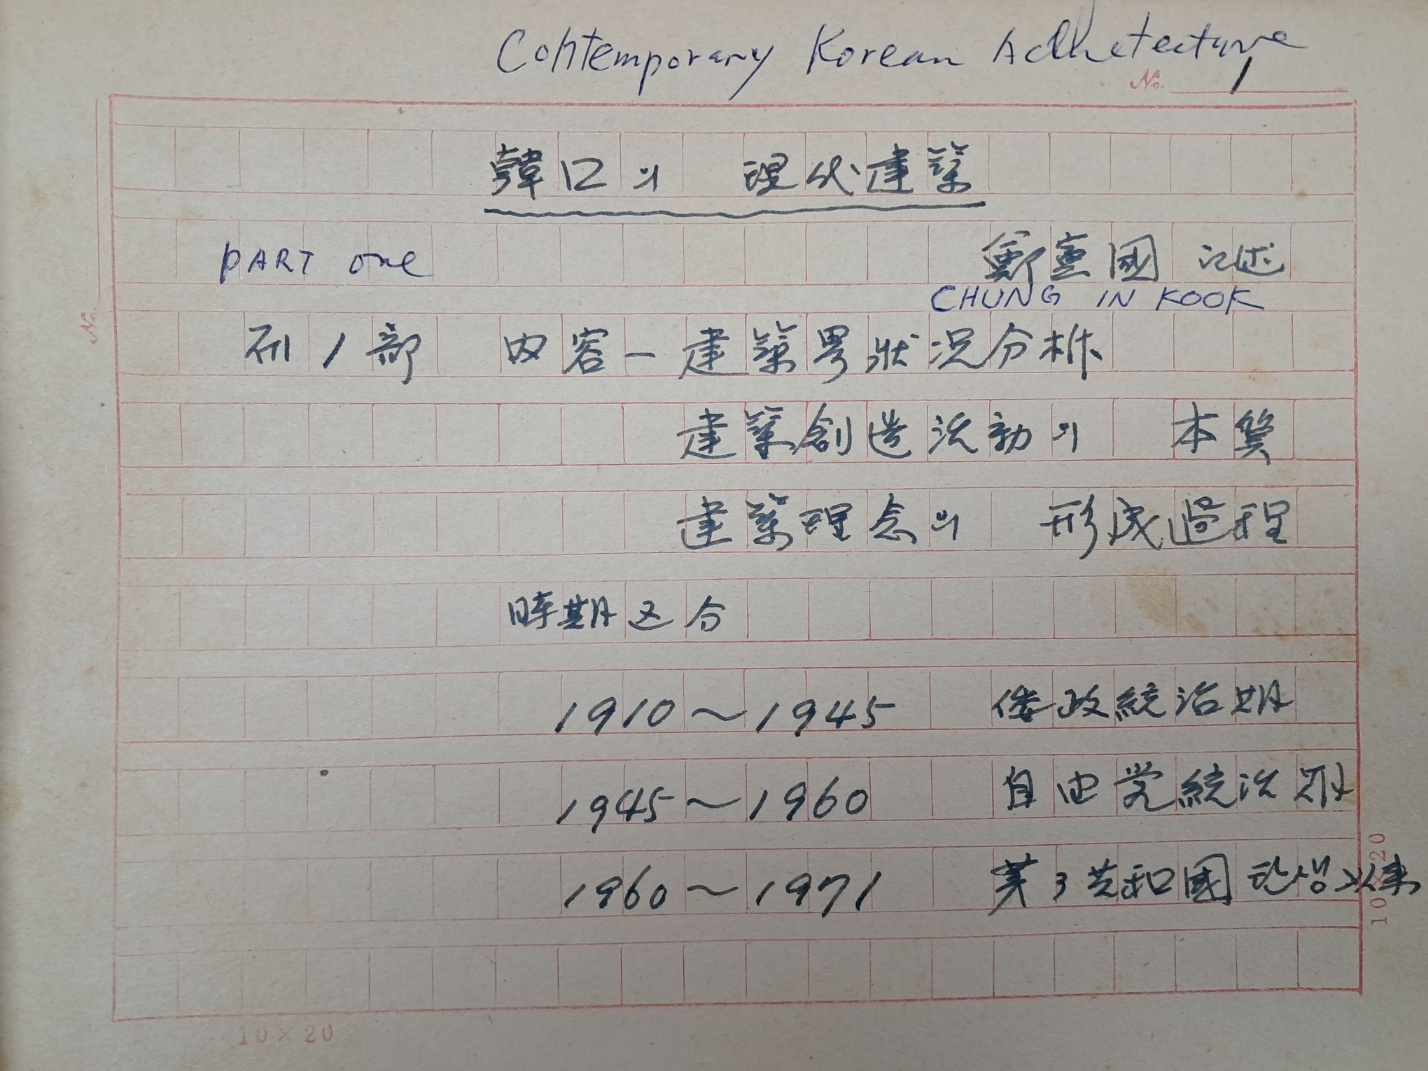 Contemporary Korean Adhetecture
No.
韓口의 現代建築
PART one 鄭寅國 記述
CHUNG IN KOOK
No.
제1部 內容 - 建築界狀況分析
建築創造活動의 本質
建築理念의 形成過程
時期区分
1910~1945 倭政統治期
1945~1960 自由党統治期
1960~1971 第3共和國 탄생以来
10×20
10×20